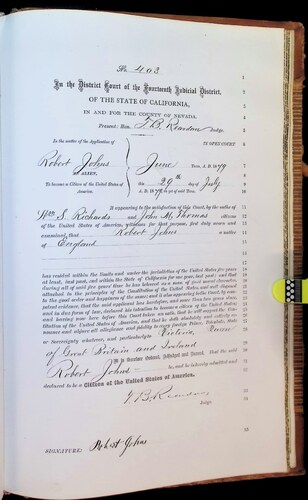 No 403
In the District Court of the Fourteenth Judicial District,
OF THE STATE OF CALIFORNIA,
IN AND FOR THE COUNTY OF NEVADA.
Present: Hon. T. B. Reardan Judge.
In the matter of the Application of
Robert Johns
AN ALIEN,
To become a Citizen of the United States of
America.
June Term, A. D. 1879
the 29th day of July
A. D. 1879
It appearing to the satisfaction of this Court, by the oaths of
Wm S. Richards and John M. Thomas citizens
of the United States of America, witnesses for that purpose, first duly sworn and
examined, that Robert Johns a native
of England
has resided within the limits and under the jurisdiction of the United States five years
at least, last past, and within the State of California for one year, last past; and that
during all of said five years' time he has behaved as a man of good moral character,
attached to the principles of the Constitution of the United States, and well disposed
to the good order and happiness of the same; and it also appearing to the Court, by com-
petent evidence, that the said applicant has heretofore, and more than two years since,
and in due form of law, declared his intention to become a citizen of the United States;
and having now here before this Court taken an oath, that he will support the Con-
stitution of the United States of America, and that he doth absolutely and entirely re-
nounce and abjure all allegiance and fidelity to every foreign Prince, Potentate, State
or Sovereignty whatever, and particularly to Victoria Queen
of Great Britain and Ireland
It is therefore Ordered, Adjudged and Decreed, that the said
Robert Johns be, and he is hereby admitted and
declared to be a Citizen of the United States of America.
T. B. Reardan
Judge.
SIGNATURE: Robert Johns